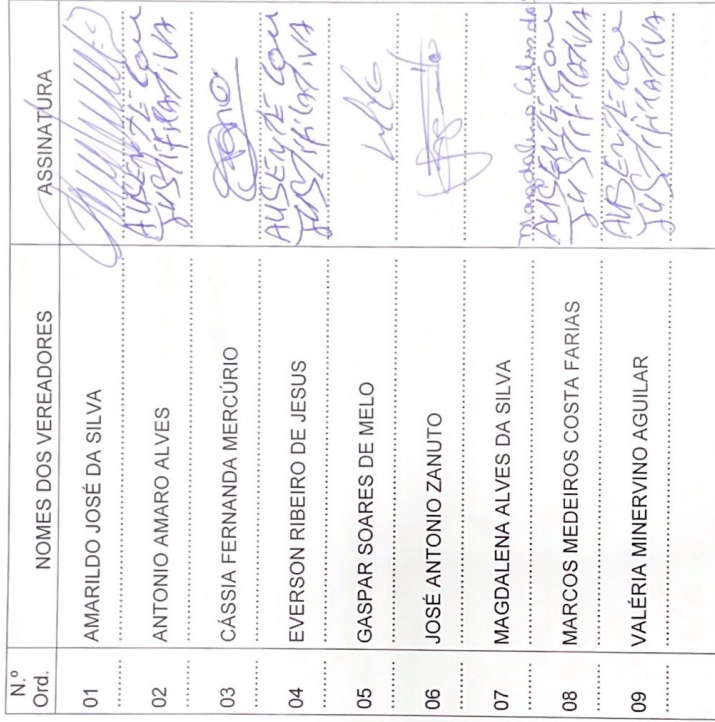 N.º Ord. NOMES DOS VEREADORES ASSINATURA
01 AMARILDO JOSÉ DA SILVA
02 ANTONIO AMARO ALVES AUSENTE COM JUSTIFICATIVA
03 CÁSSIA FERNANDA MERCÚRIO
04 EVERSON RIBEIRO DE JESUS AUSENTE COM JUSTIFICATIVA
05 GASPAR SOARES DE MELO
06 JOSÉ ANTONIO ZANUTO
07 MAGDALENA ALVES DA SILVA Magdalena Alves da
08 MARCOS MEDEIROS COSTA FARIAS AUSENTE COM JUSTIFICATIVA
09 VALÉRIA MINERVINO AGUILAR AUSENTE COM JUSTIFICATIVA